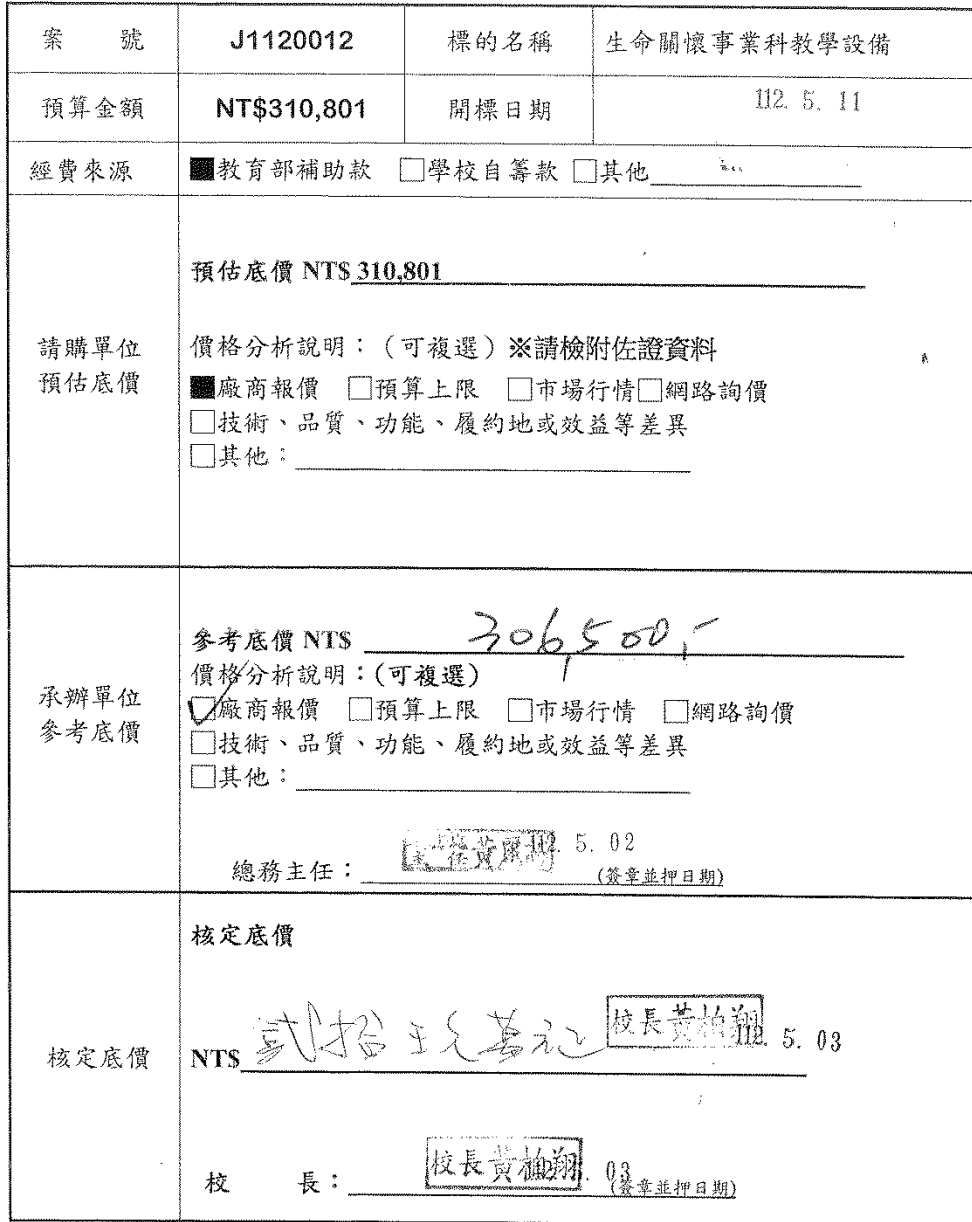 案 號 J1120012 標的名稱 生命關懷事業科教學設備
預算金額 NT$310,801 開標日期 112. 5. 11
經費來源 ■教育部補助款 □學校自籌款 □其他
請購單位
預估底價
預估底價 NT$ 310,801
價格分析說明：（可複選）※請檢附佐證資料
■廠商報價 □預算上限 □市場行情□網路詢價
□技術、品質、功能、履約地或效益等差異
□其他：
承辦單位
參考底價
參考底價 NT$ 306,500,-
價格分析說明：(可複選)
☑廠商報價 □預算上限 □市場行情 □網路詢價
□技術、品質、功能、履約地或效益等差異
□其他：
總務主任： 112. 5. 02
(簽章並押日期)
核定底價
核定底價
NT$ 貳拾 萬元 校長黃柏翔 112. 5. 03
校 長： 校長黃柏翔 03
(簽章並押日期)